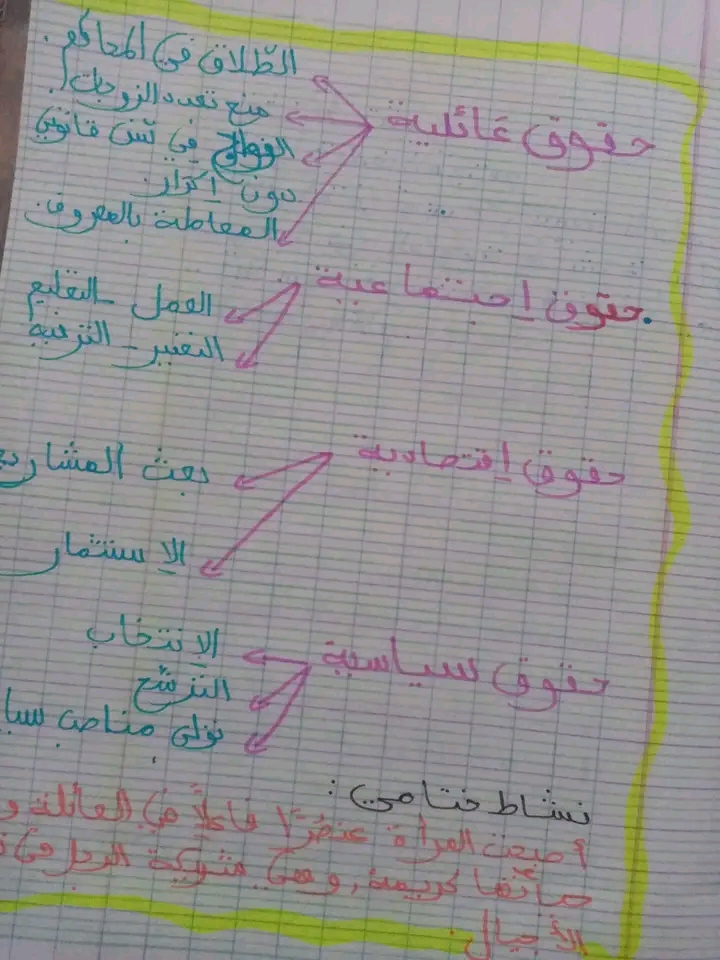 حقوق عائلية
الطّلاق في المحاكم.
منع تعدد الزوجات.
الزواج في سن قانوني
دون إكراه.
المعاملة بالمعروف.
حقوق إجتماعية.
العمل - التعليم
التعبير - الترفيه
حقوق إقتصادية
بعث المشاريع
الإستثمار
حقوق سياسية
الإنتخاب
الترشّح
تولي مناصب
نشاط ختامي:
أصبحت المرأة عنصرًا فاعلاً في العائلة و
كريمة، وهي شريكة الرجل في
الأجيال.